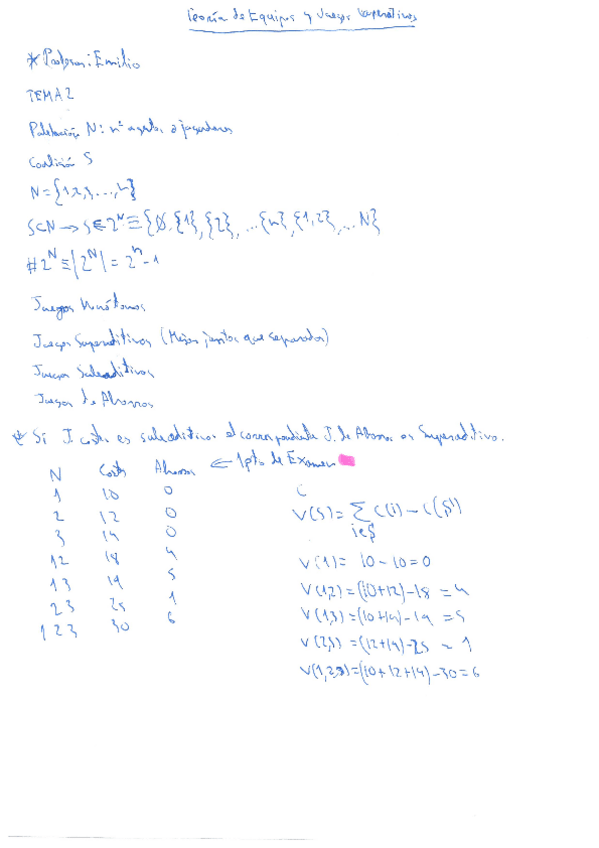 Teoría de Equipos y Juegos Cooperativos
* Profesor: Emilio
TEMA 2
N: nº agentes o jugadores
Coalición S
N = {1, 2, 3, ..., n}
S⊂N → S∈2^N ≡ {∅, {1}, {2}, ... {n}, {1,2}, ... N}
#2^N ≡ |2^N| = 2^n - 1
Juegos Monótonos
Juegos Superaditivos (Mejor juntos que separados)
Juegos Subaditivos
Juegos de Ahorros
* Si J. costes es subaditivo el correspondiente J. de Ahorro es Superaditivo.
N Costes Ahorros ← 1pto de Examen
1 10 0
2 12 0
3 14 0
12 18 4
13 19 5
23 25 1
123 30 6
C
V(S) = Σ C(i) - C(S)
i∈S
V(1) = 10 - 10 = 0
V(1,2) = (10+12) - 18 = 4
V(1,3) = (10+14) - 19 = 5
V(2,3) = (12+14) - 25 = 1
V(1,2,3) = (10+12+14) - 30 = 6